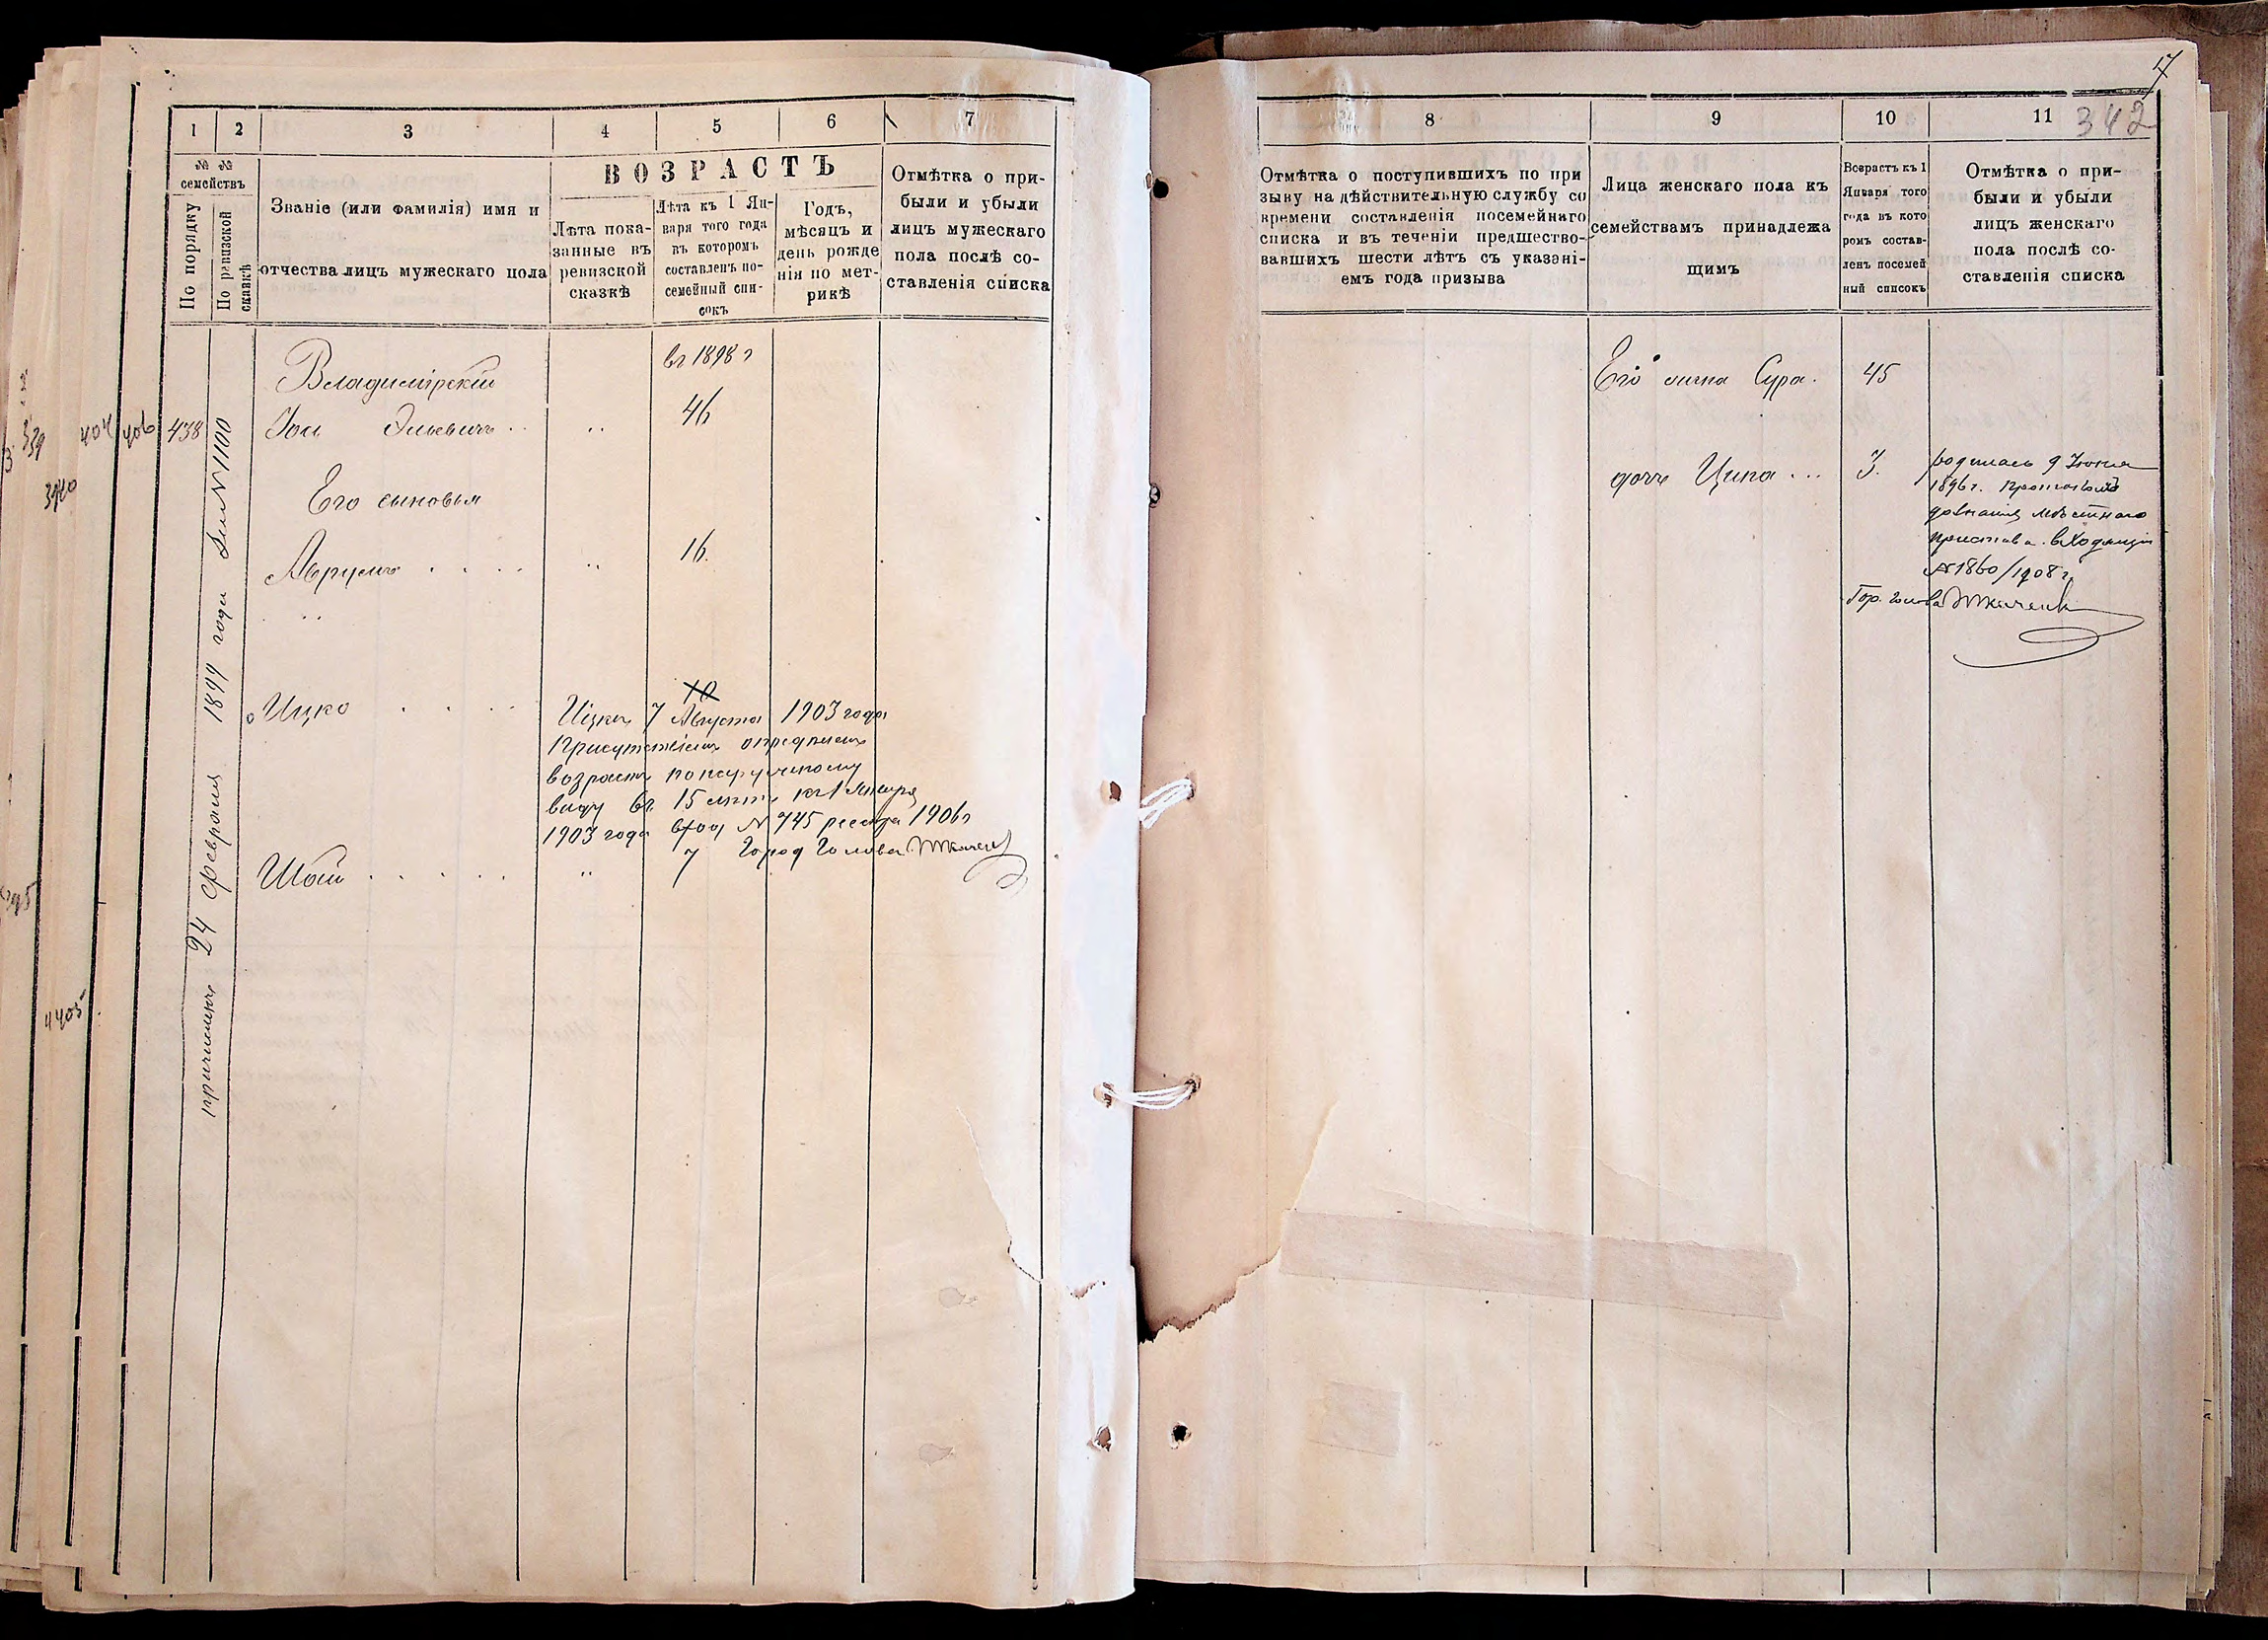 1
2
3
4
5
6
7
№ №
семействъ
По порядку
По ревизской
сказкѣ
Званіе (или фамилія) имя и
отчества лицъ мужескаго пола
ВОЗРАСТЪ
Лѣта пока-
занные въ
ревизской
сказкѣ
Лѣта къ 1 Ян-
варя того года
въ которомъ
составленъ по-
семейный спи-
сокъ
Годъ,
мѣсяцъ и
день рожде
нія по мет-
рикѣ
Отмѣтка о при-
были и убыли
лицъ мужескаго
пола послѣ со-
ставленія списка
въ 1898 г
Владимірскій
406
438
Эльевичъ
46
Его сыновья
Аврумъ
16
10
Ицко
Ицко 7 Августа 1903 года
Присутствіемъ опредѣленъ
возрастъ по наружному
виду въ 15 лѣтъ къ 1 Января
1903 года вход № 745 реестра 1906 г
Город Голова Ткаченко
Шоил
7
причислены 24 февраля 1897 года № 1100
404
339
3940
395
4405
17
342
8
9
10
11
Отмѣтка о поступившихъ по при
зыву на дѣйствительную службу со
времени составленія посемейнаго
списка и въ теченіи предшество-
вавшихъ шести лѣтъ съ указані-
емъ года призыва
Лица женскаго пола къ
семействамъ принадлежа
щимъ
Возрастъ къ 1
Января того
года въ кото
ромъ состав-
ленъ посемей
ный списокъ
Отмѣтка о при-
были и убыли
лицъ женскаго
пола послѣ со-
ставленія списка
Его жена Сура.
45
дочь Ципа
3.
родилась 9 Іюня
1896 г. Протоколъ
дознанія мѣстнаго
пристава. входящій
№ 1860/1908 г
Гор. голова Ткаченко